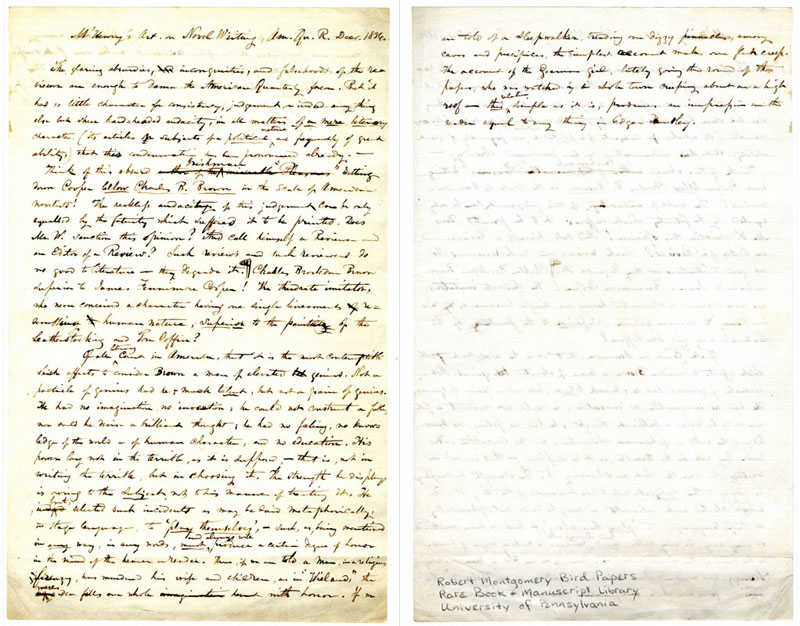 McHenry's Art. on Novel Writing, Am. Qu. R. Decr. 1834.
The glaring absurdies, incongruities, and falsehoods of the re-
viewer are enough to damn the American Quarterly forever. But it
has so little character for consistency, judgement, or indeed any thing
else but sheer hardheaded audacity, in all matters of a mere literary
character (its articles of subjects of a political nature are frequently of great
ability,) that this condemnation has been pronounced already.—
Think of this absurd Irishman putting
down Cooper below Charles B. Brown in the Scale of American
novelists! The reckless audacity of this judgement can be only
equalled by the fatuity which suffered it to be printed. Does
Mr. W. sanction this opinion? And call himself a Reviewer and
an Editor of a Review? Such reviews and such reviewers do
no good to literature — they degrade it. ¶ Charles Brockden Brown
superior to James Fennimore Cooper! The thirdrate imitator,
who never conceived a character having one single lineament of re-
semblance to human nature, superior to the painter of the
Leatherstocking and Tom Coffin?
Of all Literary Cants in America, it is the most contemptible
which affects to consider Brown a man of elevated genius. Not a
particle of genius had he; much talent, but not a grain of genius.
He had no imagination, no invention; he could not construct a fable
nor could he devise a brilliant thought; he had no feeling, no know-
ledge of the world or of human character, and no education. His
power lay not in the terrible, as it is supposed,—that is, not in
writing the terrible, but in choosing it. The strength he displays
is owing to the subject, not to his manner of treating it. He
selected such incidents as may be said metaphorically,
in stage language, to "play themselves",—such, as being mentioned
in any way, in any words, must and always will produce a certain degree of horror
in the mind of the hearer or reader. Thus, if we are told a man, in a religious
frenzy, has murdered his wife and children, as in "Wieland" the
idea fills our whole with horror. If we
are told of a sleepwalker, treading on dizzy pinnacles, among
caves and precipices, the simplest account makes our flesh creep.
The account of the German girl, lately going the round of the
papers, who was watched by a whole town creeping about on a high
roof—this relation, simple as it is, produces an impression on the
reader equal to any thing in Edgar Huntley.
Robert Montgomery Bird Papers
Rare Book + Manuscript Library
University of Pennsylvania